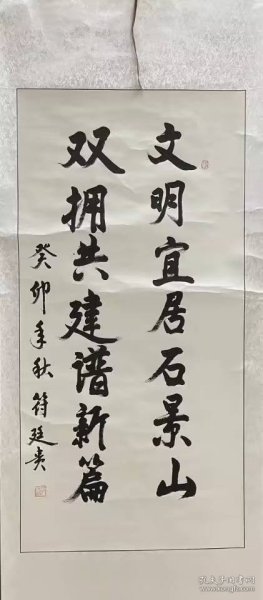 文明宜居石景山
双拥共建谱新篇
癸卯年秋 符廷贵